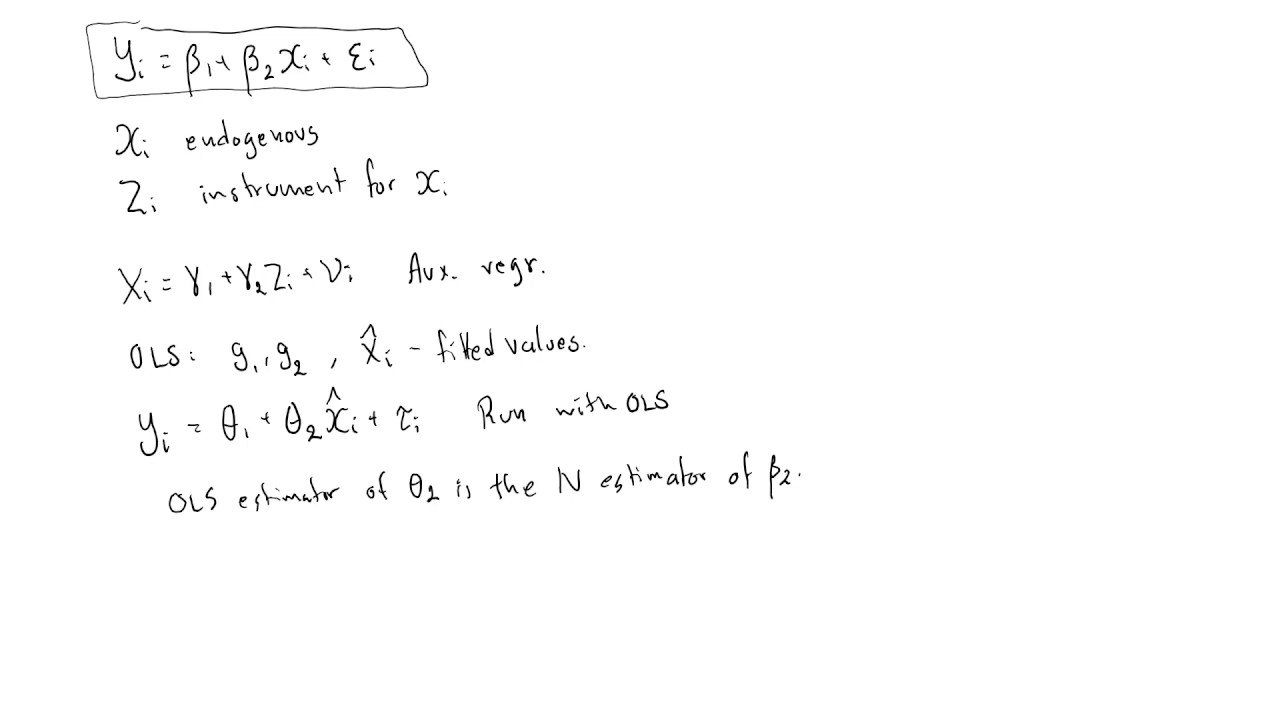 yᵢ = β₁ + β₂xᵢ + εᵢ
xᵢ endogenous
Zᵢ instrument for xᵢ
Xᵢ = γ₁ + γ₂Zᵢ + νᵢ Aux. regr.
OLS: g₁, g₂, x̂ᵢ – fitted values.
yᵢ = θ₁ + θ₂x̂ᵢ + τᵢ Run with OLS
OLS estimator of θ₂ is the IV estimator of β₂.